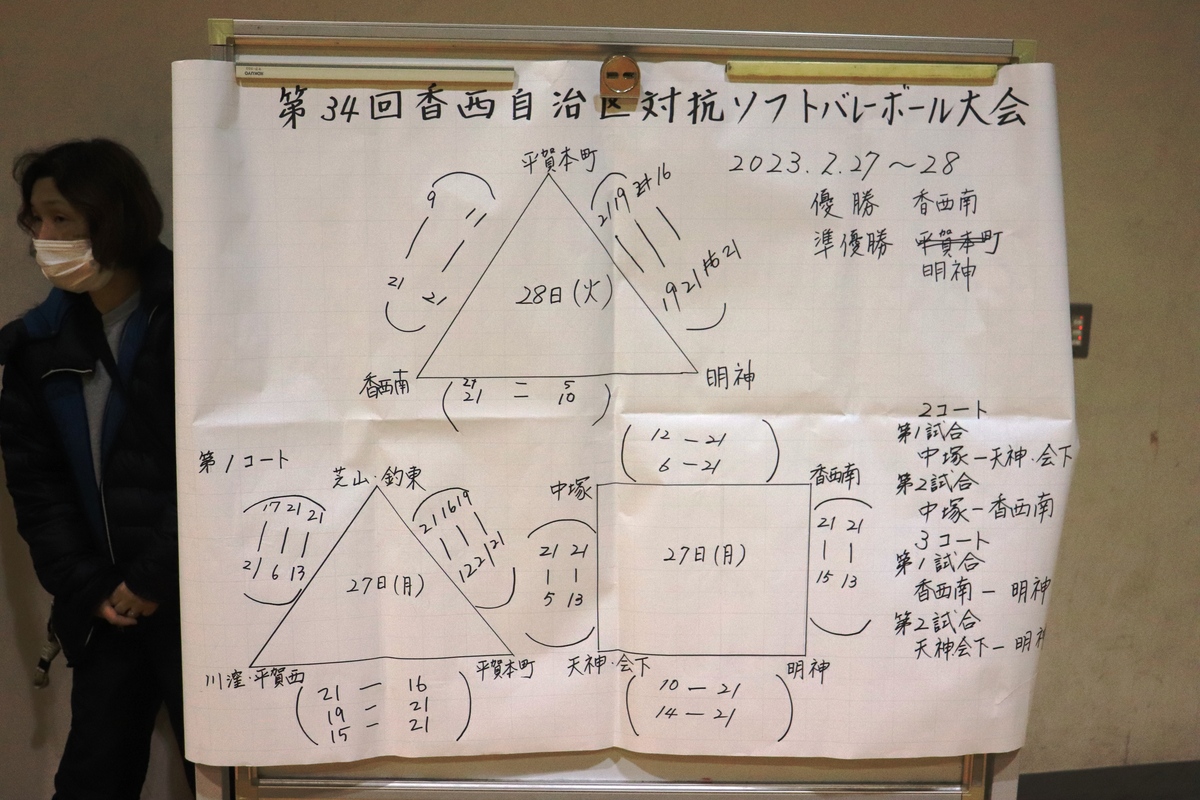 第34回香西自治区対抗ソフトバレーボール大会
2023.2.27～28
優勝 香西南
準優勝 平賀本町
明神
平賀本町
9 11
21 21
2119 21 16
19 21 16 21
28日(火)
香西南
明神
21 = 5
21 10
第1コート
芝山・釣東
17 21 21
21 6 13
21 16 19
12 21 21
27日(月)
川窪・平賀西
平賀本町
21 — 16
19 = 21
15 = 21
12 — 21
6 — 21
中塚
香西南
21 21
5 13
21 21
15 13
27日(月)
天神・会下
明神
10 — 21
14 — 21
2コート
第1試合
中塚—天神・会下
第2試合
中塚—香西南
3コート
第1試合
香西南 — 明神
第2試合
天神会下—明神